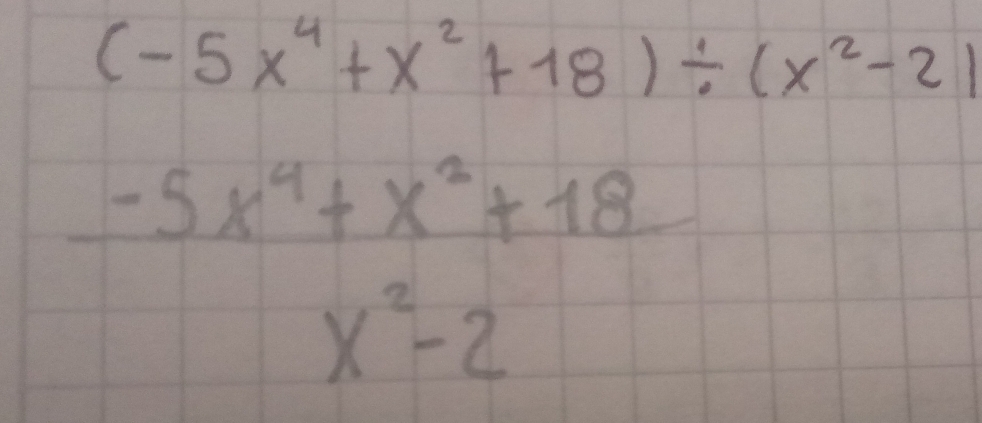 (-5x⁴+x²+18)÷(x²-2)
-5x⁴+x²+18
x²-2